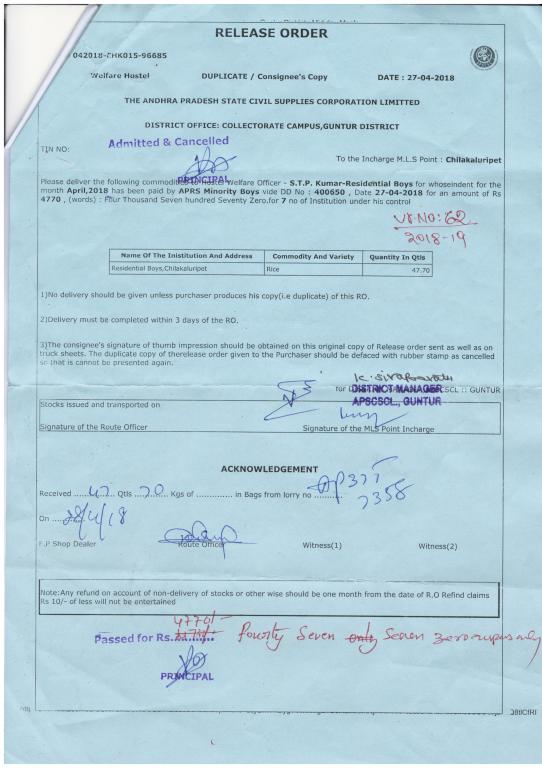 RELEASE ORDER
042018-CHK015-96685
Welfare Hostel DUPLICATE / Consignee's Copy DATE : 27-04-2018
THE ANDHRA PRADESH STATE CIVIL SUPPLIES CORPORATION LIMITTED
DISTRICT OFFICE: COLLECTORATE CAMPUS,GUNTUR DISTRICT
TIN NO:
Admitted & Cancelled
PRINCIPAL
To the Incharge M.L.S Point : Chilakaluripet
Please deliver the following commodities to Hostel Welfare Officer - S.T.P. Kumar-Residential Boys for whoseindent for the
month April,2018 has been paid by APRS Minority Boys vide DD No : 400650 , Date 27-04-2018 for an amount of Rs
4770 , (words) : Four Thousand Seven hundred Seventy Zero.for 7 no of Institution under his control
Vr. No: 62
2018-19
Name Of The Inistitution And Address Commodity And Variety Quantity In Qtls
Residential Boys,Chilakaluripet Rice 47.70
1)No delivery should be given unless purchaser produces his copy(i.e duplicate) of this RO.
2)Delivery must be completed within 3 days of the RO.
3)The consignee's signature of thumb impression should be obtained on this original copy of Release order sent as well as on
truck sheets. The duplicate copy of therelease order given to the Purchaser should be defaced with rubber stamp as cancelled
so that is cannot be presented again.
for DISTRICT MANAGER APSCSCL :: GUNTUR
APSCSCL, GUNTUR
Stocks issued and transported on
Signature of the Route Officer Signature of the MLS Point Incharge
ACKNOWLEDGEMENT
Received 47 Qtls 70 Kgs of .............. in Bags from lorry no
7358
On 28/4/18
F.P Shop Dealer Route Officer Witness(1) Witness(2)
Note:Any refund on account of non-delivery of stocks or other wise should be one month from the date of R.O Refind claims
Rs 10/- of less will not be entertained
4770/-
Passed for Rs........... Fourty Seven only Seven zero rupees only
PRINCIPAL